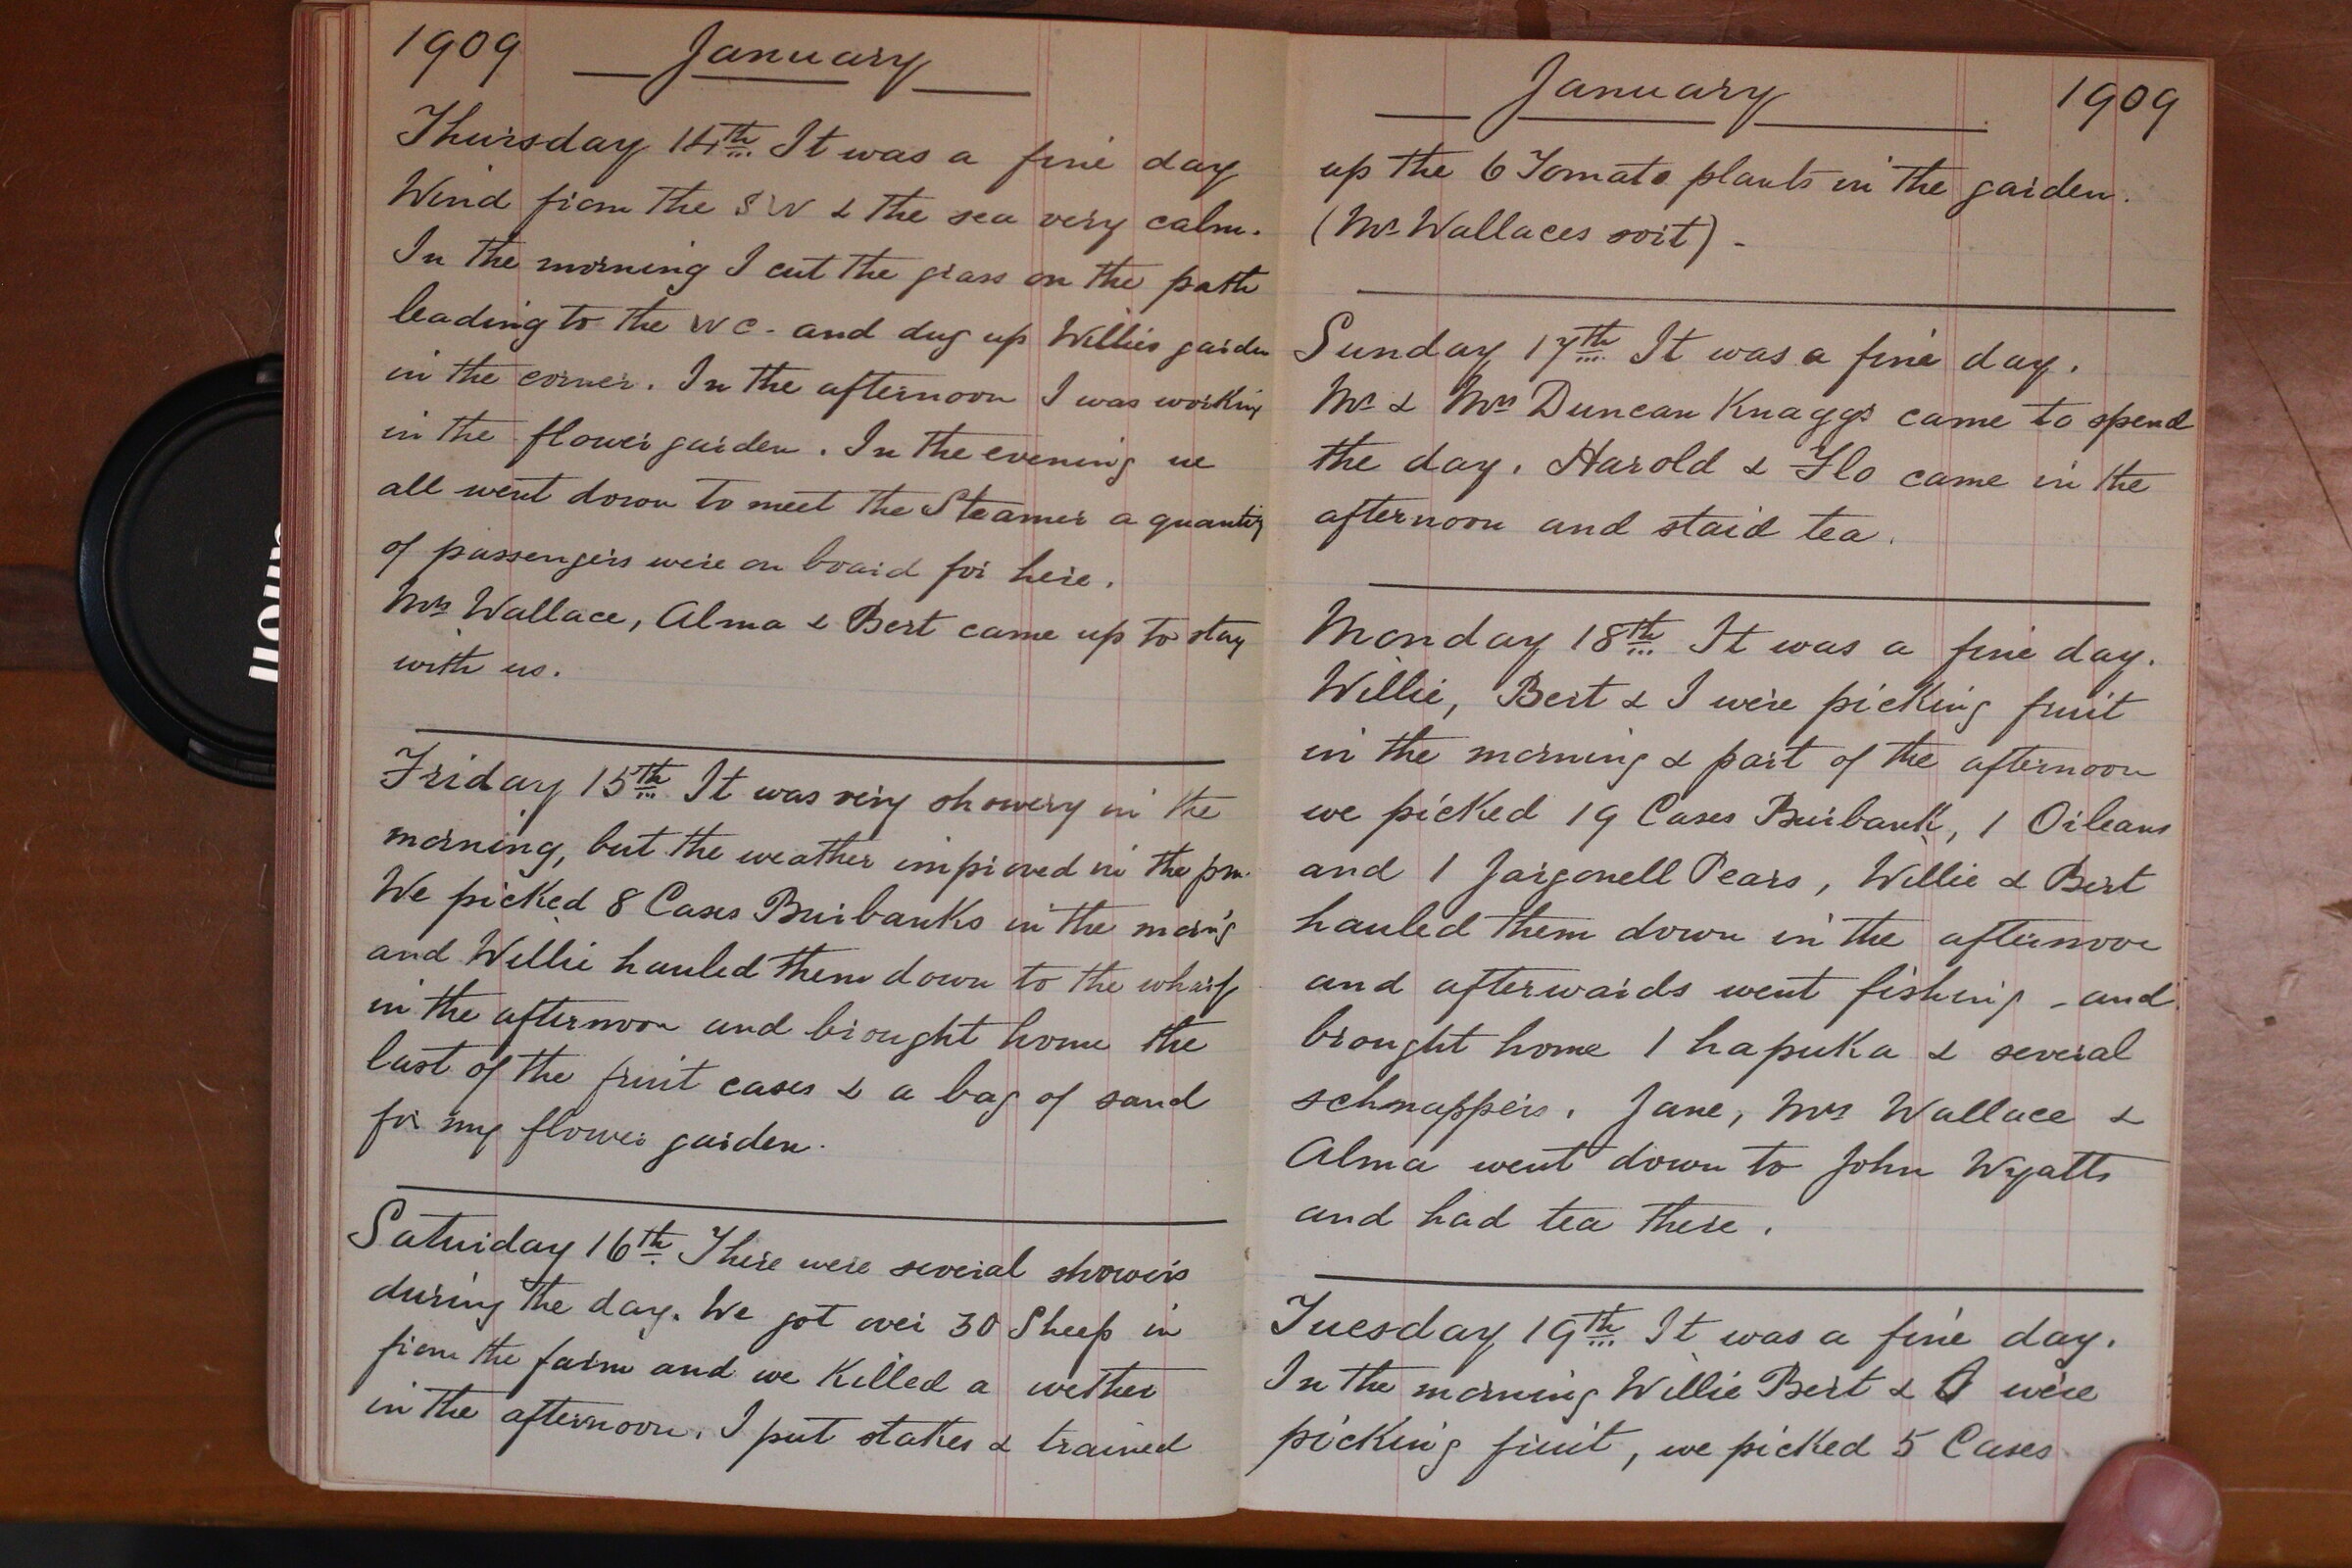 1909 January
Thursday 14th It was a fine day
Wind from the SW & the sea very calm.
In the morning I cut the grass on the path
leading to the WC. and dug up Willies garden
in the corner. In the afternoon I was working
in the flower garden. In the evening we
all went down to meet the Steamer a quantity
of passengers were on board for here.
Mrs Wallace, Alma & Bert came up to stay
with us.
Friday 15th It was very showery in the
morning, but the weather improved in the pm.
We picked 8 Cases Burbanks in the morn'g
and Willie hauled them down to the wharf
in the afternoon and brought home the
last of the fruit cases & a bag of sand
for my flower garden.
Saturday 16th There were several showers
during the day. We got over 30 Sheep in
from the farm and we killed a wether
in the afternoon. I put stakes & trained
January 1909
up the 6 Tomato plants in the garden.
(Mr Wallaces sort) -
Sunday 17th It was a fine day.
Mr & Mrs Duncan Knaggs came to spend
the day. Harold & Flo came in the
afternoon and staid tea.
Monday 18th It was a fine day.
Willie, Bert & I were picking fruit
in the morning & part of the afternoon
we picked 19 Cases Burbank, 1 Orleans
and 1 Jargonell Pears, Willie & Bert
hauled them down in the afternoon
and afterwards went fishing - and
brought home 1 hapuka & several
schnappers. Jane, Mrs Wallace &
Alma went down to John Wyatts
and had tea there.
Tuesday 19th It was a fine day.
In the morning Willie Bert & I were
picking fruit, we picked 5 Cases